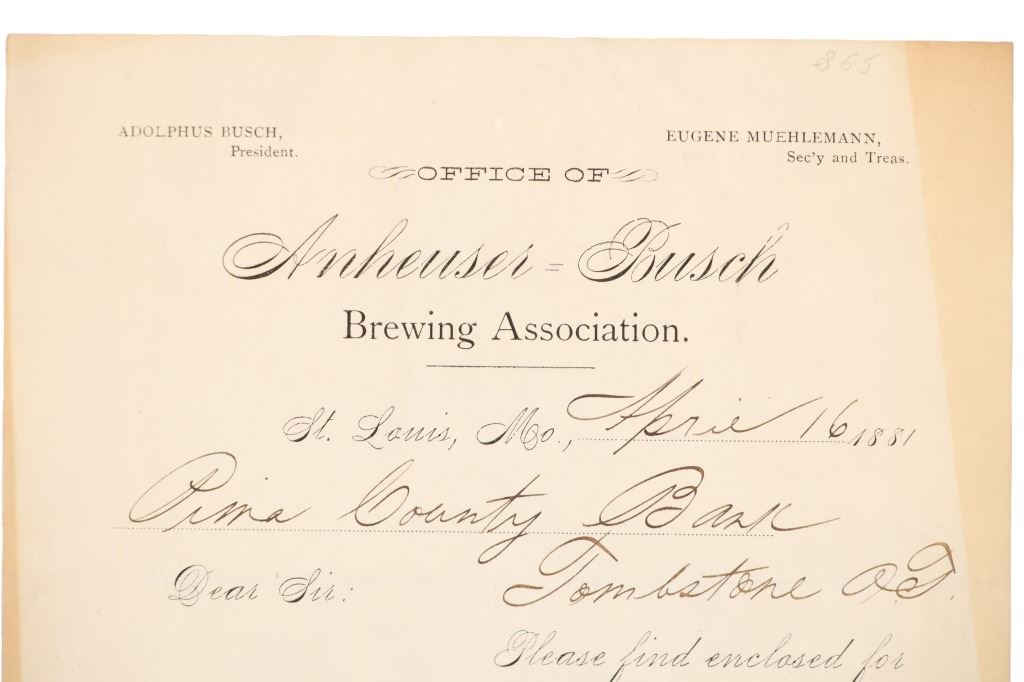 865
ADOLPHUS BUSCH,
President.
EUGENE MUEHLEMANN,
Sec'y and Treas.
OFFICE OF
Anheuser=Busch
Brewing Association.
St. Louis, Mo., April 16 1881
Pima County Bank
Tombstone A.T.
Dear Sir:
Please find enclosed for